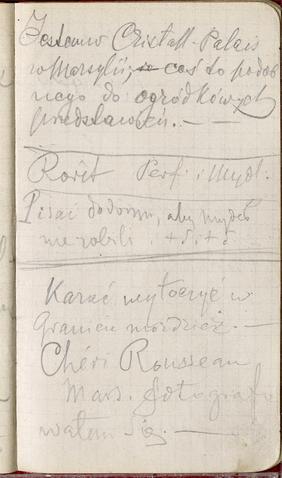 Jestem w Cristall-Palais
w Marsylii, coś to podob
nego do ogródkowych
przedstawień. —
Rorît Perf. i Mydł.
Pisać do domu, aby mydeł
nie robili
Kazać wytoczyć w
Granicie moździeż. —
Chéri Rousseau
Mars. fotografo
wałem się. —